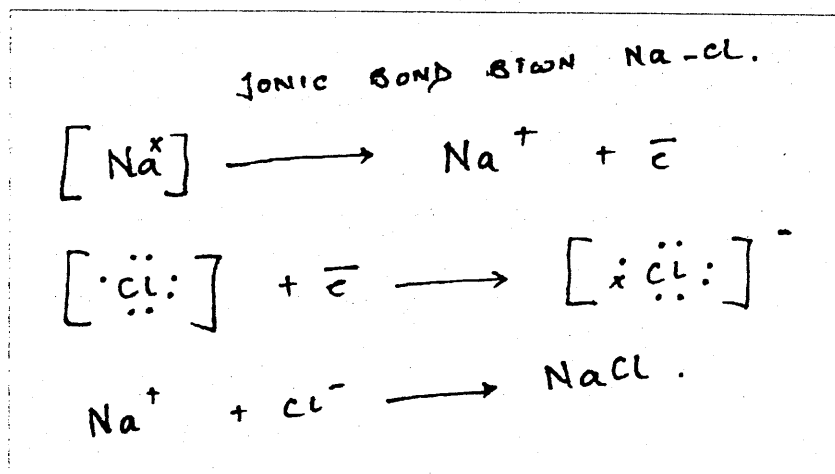 IONIC BOND BTWN Na-Cl.
[Naˣ] ⟶ Na⁺ + e̅
[·C̤̈l:] + e̅ ⟶ [ẋ C̤̈l:]⁻
Na⁺ + Cl⁻ ⟶ NaCl.